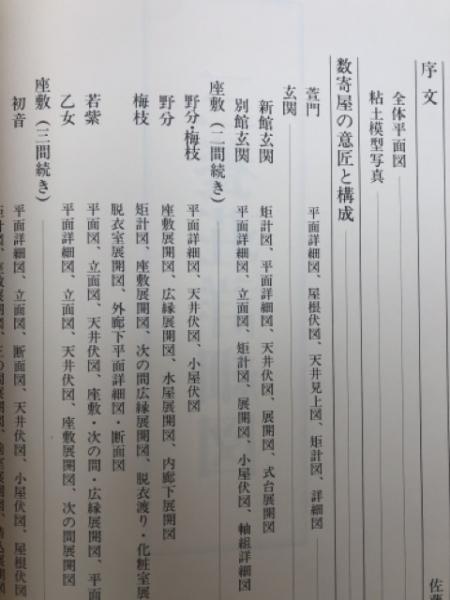 序文
佐藤
全体平面図
粘土模型写真
数寄屋の意匠と構成
萱門 平面詳細図、屋根伏図、天井見上図、矩計図、詳細図
玄関
新館玄関 矩計図、平面詳細図、天井伏図、展開図、式台展開図
別館玄関 平面詳細図、立面図、矩計図、展開図、小屋伏図、軸組詳細図
座敷(二間続き)
野分・梅枝 平面詳細図、天井伏図、小屋伏図
野分 座敷展開図、広縁展開図、水屋展開図、内廊下展開図
梅枝 矩計図、座敷展開図、次の間広縁展開図、脱衣渡り・化粧室展
脱衣室展開図、外廊下平面詳細図・断面図
若紫 平面図、立面図、天井伏図、座敷・次の間・広縁展開図、平面
乙女 平面詳細図、立面図、天井伏図、座敷展開図、次の間展開図
座敷(三間続き)
初音 平面詳細図、立面図、断面図、天井伏図、小屋伏図、屋根伏図
矩計図、座敷展開図、三の間展開図